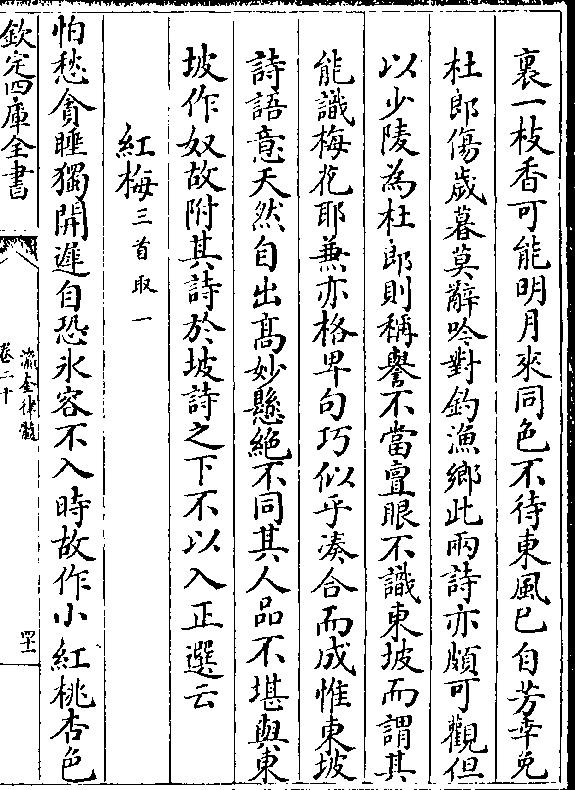 裏一枝香可能明月來同色不待東風已自芳幸免
杜郎傷歲暮莫辭吟對釣漁鄉此兩詩亦頗可觀但
以少陵為杜郎則稱譽不當亶眼不識東坡而謂其
能識梅花耶兼亦格卑句巧似乎凑合而成惟東坡
詩語意天然自出髙妙懸絶不同其人品不堪與東
坡作奴故附其詩於坡詩之下不以入正選云
紅梅三首取一
怕愁貪睡獨開遲自恐氷容不入時故作小紅桃杏色
欽定四庫全書
瀛奎律髓
卷二十